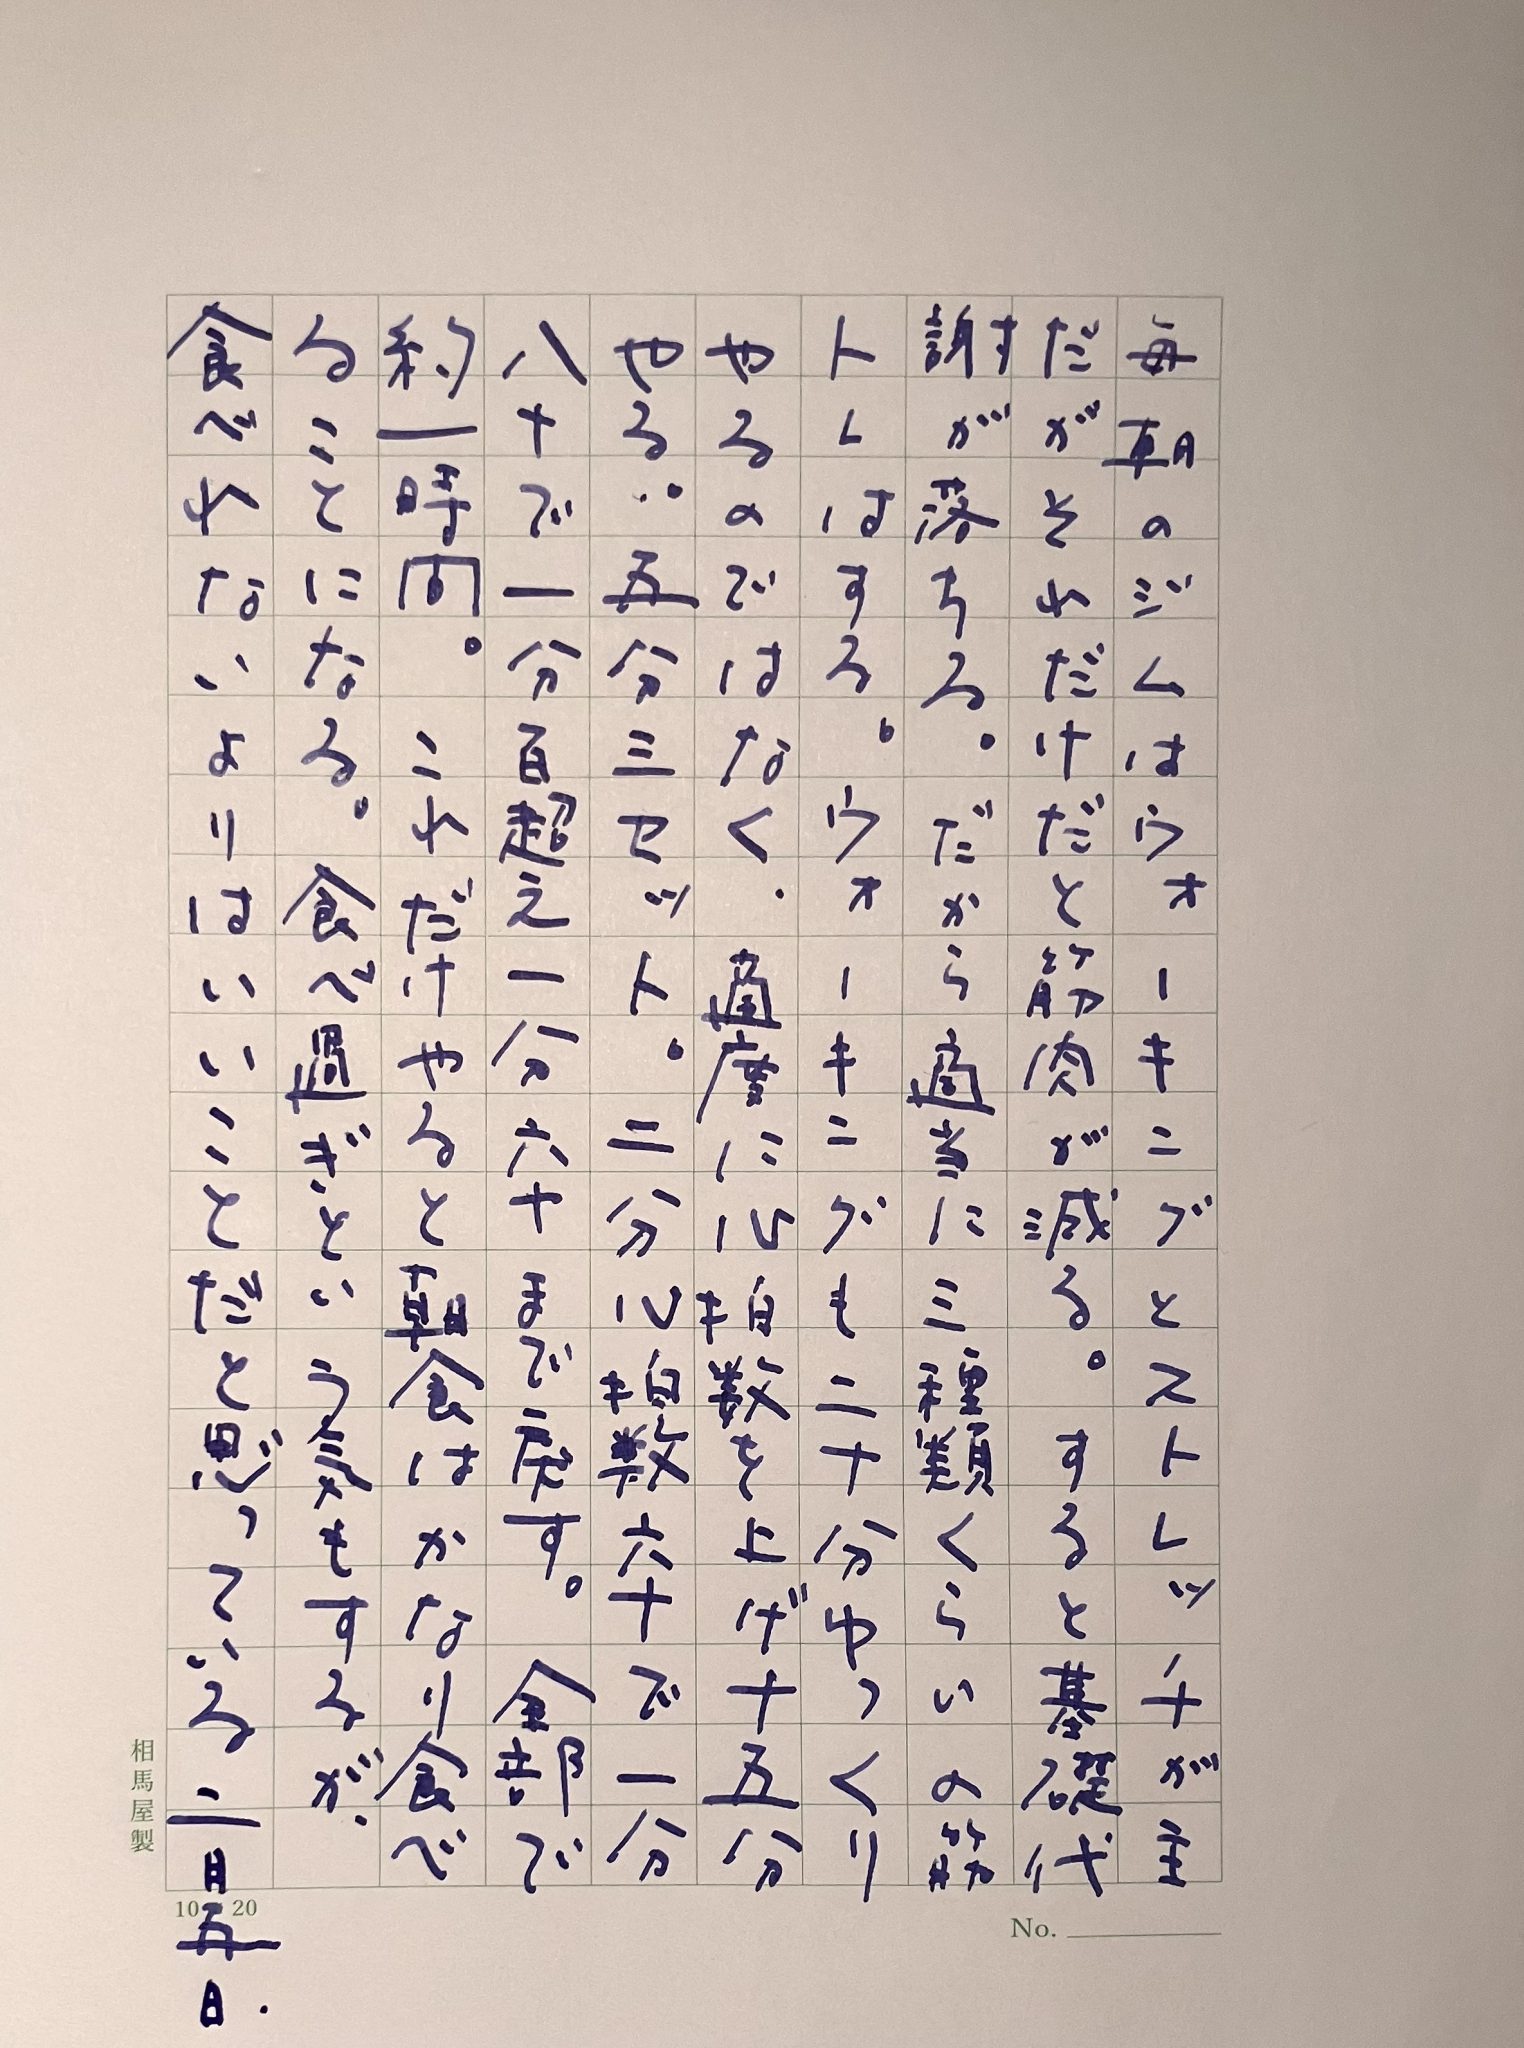 毎朝のジムはウオーキニグとストレッチが主
だがそれだけだと筋肉が減る。すると基礎代
謝すが落ちる。だから適当に三種類くらいの筋
トレはする。ウォーキニグも二十分ゆっくり
やるのではなく、適度に心拍数を上げ十五分
やる。五分三セット。二分心拍数六十で一分
八十で一分百超え一分六十まで戻す。全部で
約一時間。これだけやると朝食はかなり食べ
ることになる。食べ過ぎという気もするが、
食べれないよりはいいことだと思っている二月五日.
相馬屋製
10 20
No.